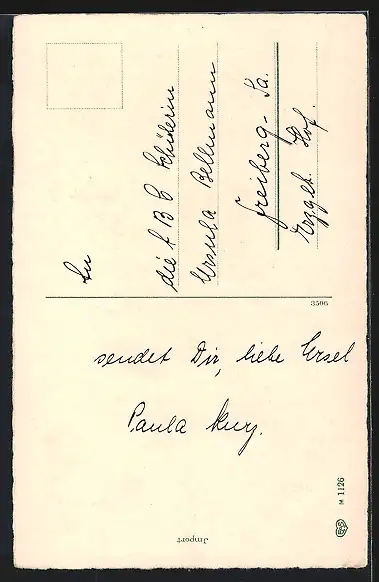 An
die A B C Schülerin
Ursula Bellmann
Freiberg Sa.
Erzgeb. Hof.
3506
sendet Dir, liebe Ursel
Paula Kurz.
M 1126
Import